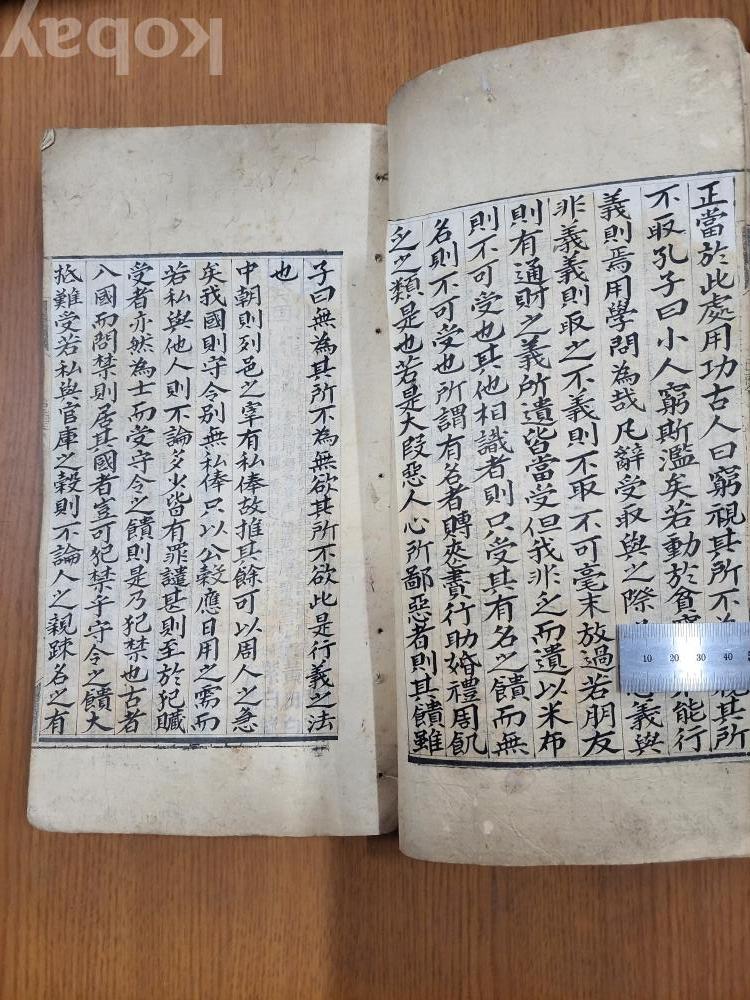 kobay
正當於此處用功古人曰窮視其所不視其所
不取孔子曰小人窮斯濫矣若動於貧能行
義則焉用學問為哉凡辭受取與之際義與
非義義則取之不義則不取不可毫末放過若朋友
則有通財之義所遺皆當受但我非乏而遺以米布
則不可受也其他相識者則只受其有名之饋而無
名則不可受也所謂有名者賻喪賮行助婚禮周飢
乏之類是也若是大段惡人心所鄙惡者則其饋雖
10 20 30 40
子曰無為其所不為無欲其所不欲此是行義之法
也
中朝則列邑之宰有私俸故推其餘可以周人之急
矣我國則守令別無私俸只以公穀應日用之需而
若私與他人則不論多少皆有罪譴甚則至於犯贓
受者亦然為士而受守令之饋則是乃犯禁也古者
入國而問禁則居其國者豈可犯禁乎守令之饋大
抵難受若私與官庫之穀則不論人之親疎名之有